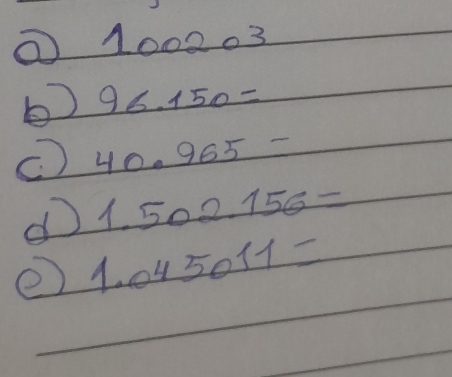 a) 100203
b) 96.150=
c) 40.965 -
d) 1.502.156=
e) 1.045011=